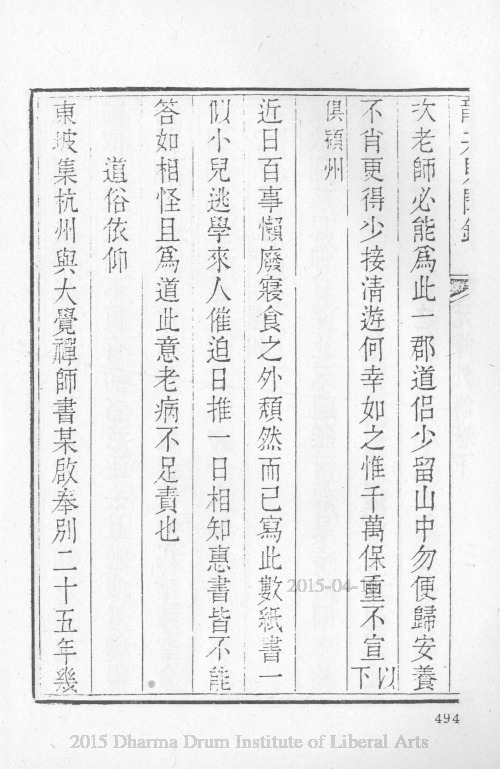 次老師必能爲此一郡道侶少留山中勿便歸安養
不肖更得少接清遊何幸如之惟千萬保重不宣以下
俱潁州
近日百事懶廢寢食之外頹然而已寫此數紙書一
似小兒逃學來人催迫日推一日相知惠書皆不能
答如相怪且爲道此意老病不足責也
道俗依仰
東坡集杭州與大覺禪師書某啟奉別二十五年幾
494
2015-04-1
2015 Dharma Drum Institute of Liberal Arts